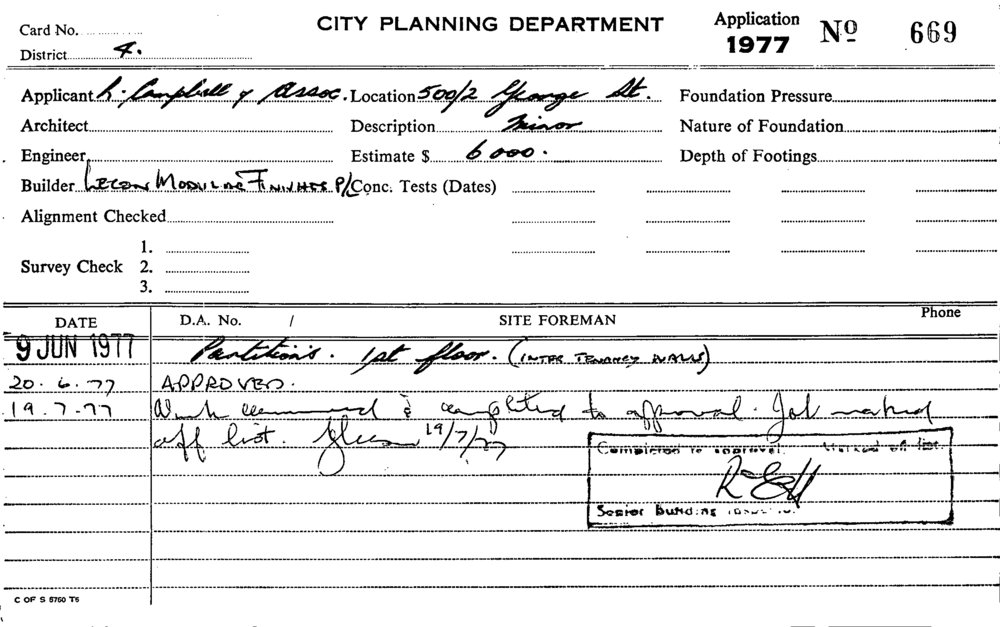 Card No.
CITY PLANNING DEPARTMENT
Application 1977 No 669
District 4.
Applicant L. Campbell & Assoc. Location 500/2 George St. Foundation Pressure
Architect Description Minor Nature of Foundation
Engineer Estimate $ 6000. Depth of Footings
Builder Modular Finishes P/L Conc. Tests (Dates)
Alignment Checked
1.
Survey Check 2.
3.
DATE D.A. No. / SITE FOREMAN Phone
9 JUN 1977 Partitions. 1st floor. (INTER TENANCY WALLS)
20.6.77 APPROVED.
19.7.77 Work commenced & completed to approval. Job marked
off list. 19/7/77
Completed to approval. Marked off list.
Senior Building Inspector.
C OF S 5750 T5